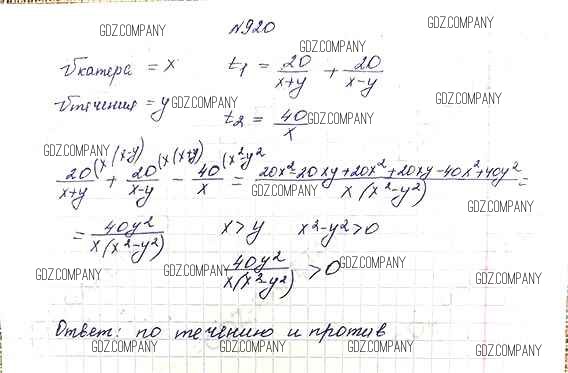 GDZ.COMPANY №920 GDZ.COMPANY
GDZ.COMPANY
vкатера = x t₁ = 20/(x+y) + 20/(x-y)
GDZ.COMPANY GDZ.COMPANY
vтечения = y GDZ.COMPANY t₂ = 40/x GDZ.COMPANY GDZ.COMPANY
GDZ.COMPANY
20(x(x-y)/(x+y) + 20(x(x+y)/(x-y) - 40(x²-y²/x = (20x²-20xy+20x²+20xy-40x²+40y²)/(x(x²-y²)) =
GDZ.COMPANY GDZ.COMPANY
= 40y²/(x(x²-y²)) x>y x²-y²>0
GDZ.COMPANY GDZ.COMPANY 40y²/(x(x²-y²)) >0 GDZ.COMPANY GDZ.COMPANY
Ответ: по течению и против
GDZ.COMPANY GDZ.COMPANY GDZ.COMPANY GDZ.COMPANY